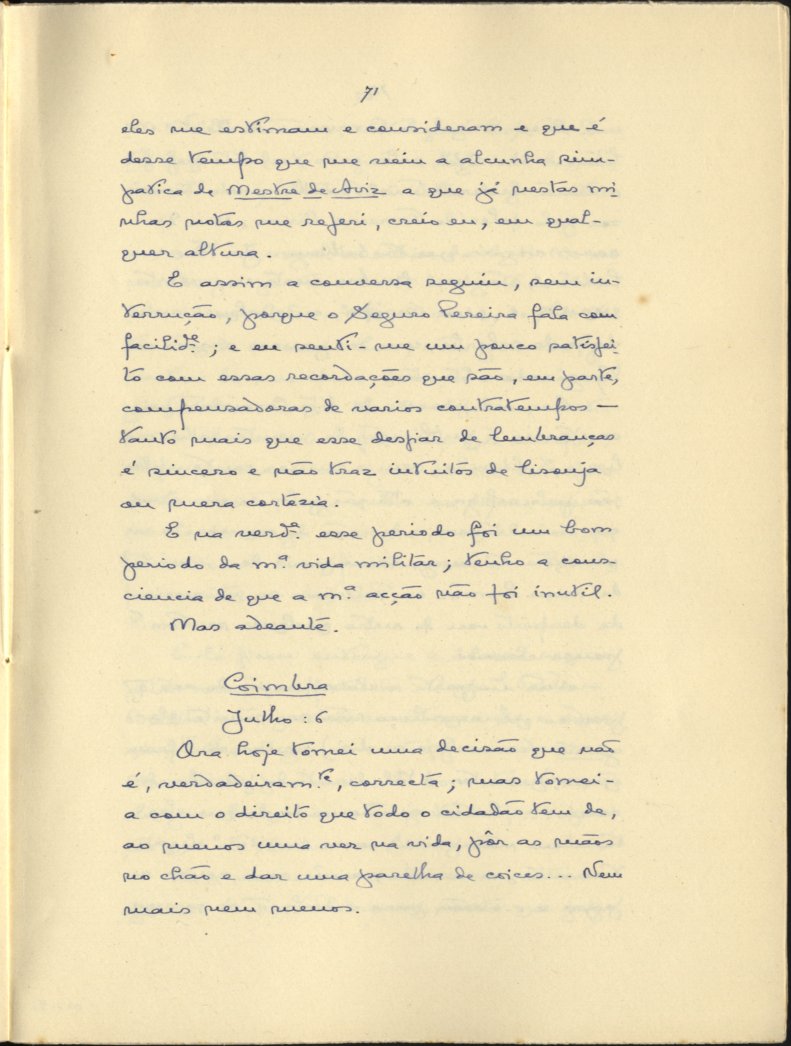 71
eles me estimam e consideram e que é
desse tempo que me veiu a alcunha sim-
patica de Mestre de Aviz a que já nestas mi-
nhas notas me referi, creio eu, em qual-
quer altura.
E assim a conversa seguiu, sem in-
terrução, porque o Seguro Pereira fala com
facilid.e; e eu senti-me um pouco satisfei-
to com essas recordações que são, em parte,
compensadoras de varios contratempos —
tanto mais que esse desfiar de lembranças
é sincero e não traz intuitos de lisonja
ou mera cortezia.
E na verd.e esse periodo foi um bom
periodo da m.a vida militar; tenho a cons-
ciencia de que a m.a acção não foi inutil.
Mas adeante.
Coimbra
Julho: 6
Ora hoje tomei uma decisão que não
é, verdadeiram.te, correcta; mas tomei-
a com o direito que todo o cidadão tem de,
ao menos uma vez na vida, pôr as mãos
no chão e dar uma parelha de coices... Nem
mais nem menos.